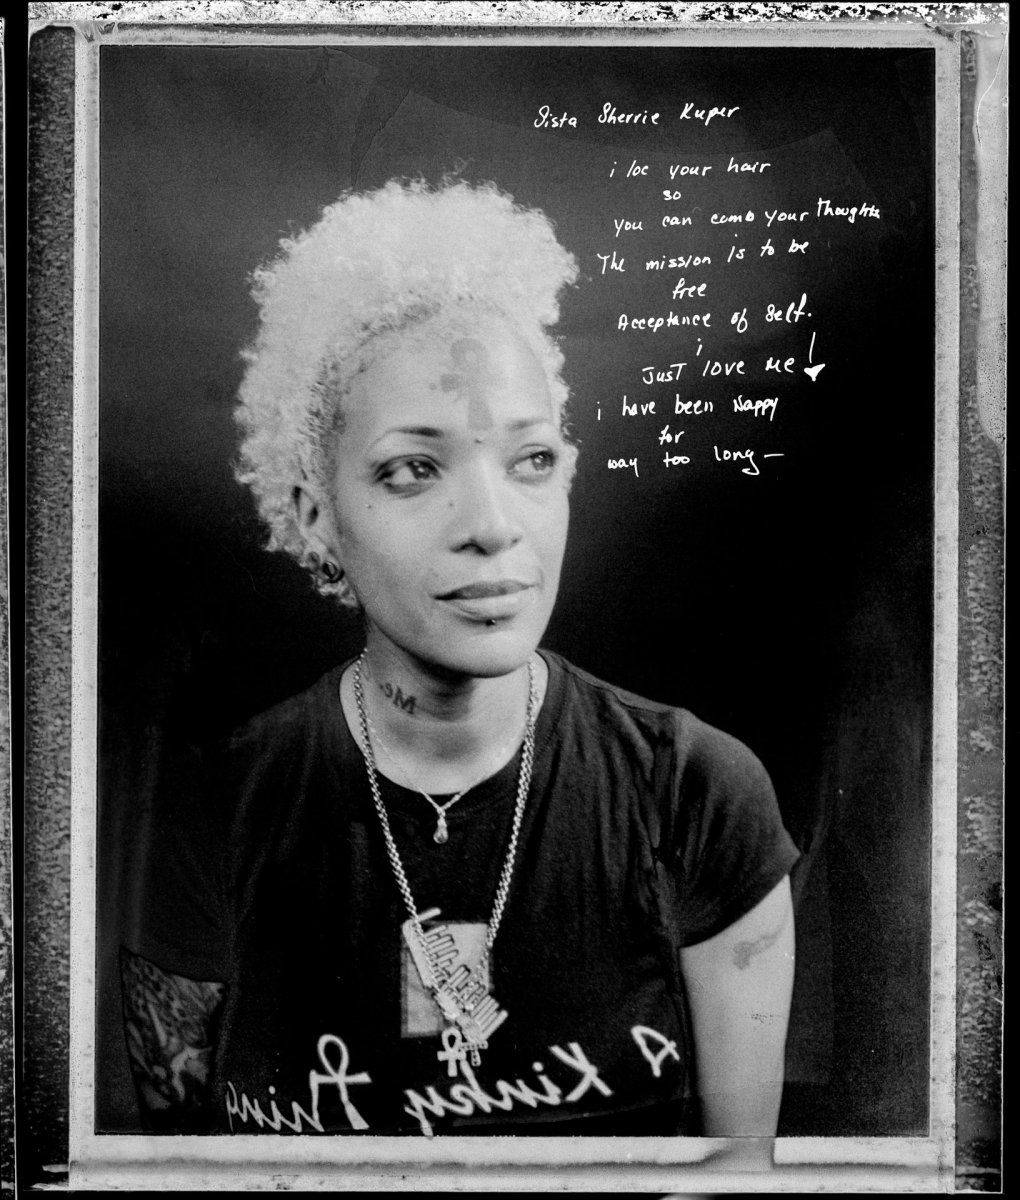 Sista Sherrie Kuper
i loc your hair
so
you can comb your Thoughts
The mission is to be
free
Acceptance of Self.
i
JUST love me
i have been Nappy
for
way too long—
Me.
A Kinky Thing